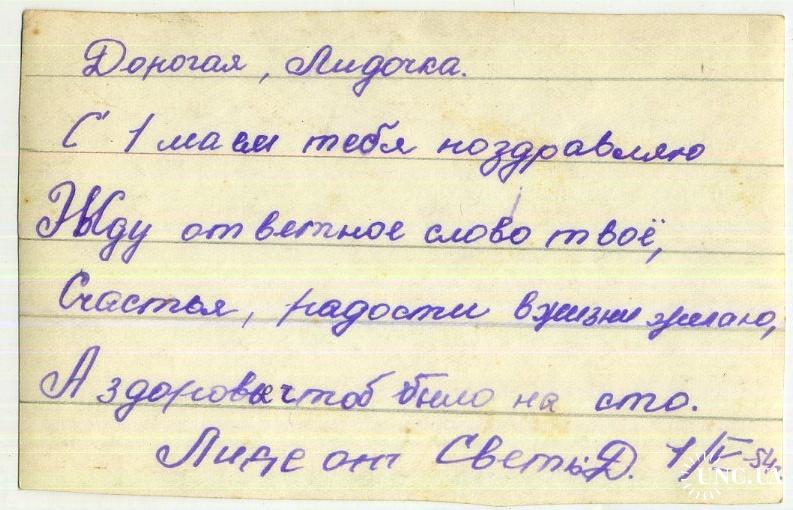 Дорогая, Лидочка.
С 1 маем тебя поздравляю
Жду ответное слово твоё,
Счастья, радости в жизни желаю,
А здоровы чтоб было на сто.
Лиде от Светы Д. 1/V-54
UNC.UA